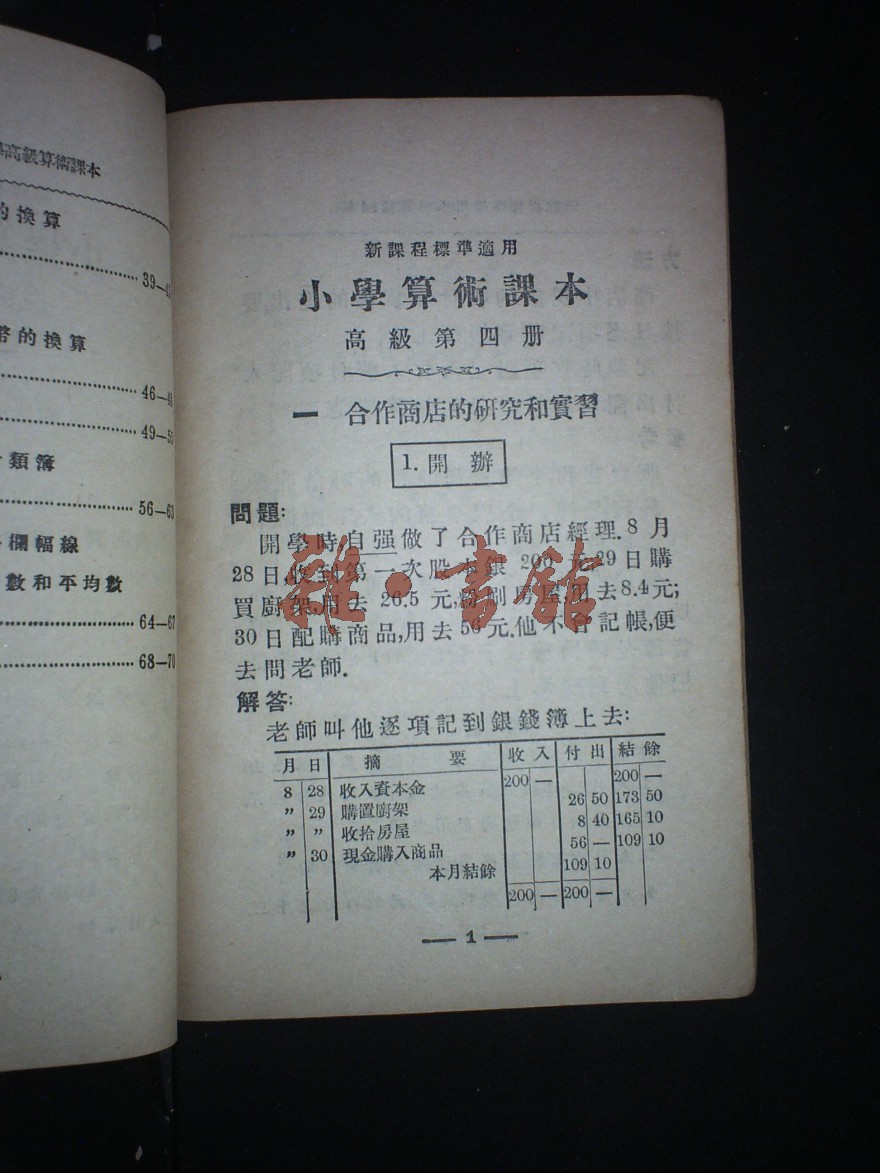 高級算術課本
的換算
39—4
幣的換算
46—4
49—5
類簿
56—63
欄幅線
數和平均數
64—67
68—70
新課程標準適用
小學算術課本
高級第四册
一 合作商店的研究和實習
1. 開辦
問題:
開學時自强做了合作商店經理.8月
28日,收到第一次股本銀 200 元.29日購
買廚架,用去 26.5 元;粉刷房屋,用去8.4元;
30日配購商品,用去56元.他不會記帳,便
去問老師.
解答:
老師叫他逐項記到銀錢簿上去:
月 日 摘 要 收入 付出 結餘
8 28 收入資本金 200 — 200 —
〃 29 購置廚架 26 50 173 50
〃 〃 收拾房屋 8 40 165 10
〃 30 現金購入商品 56 — 109 10
本月結餘 109 10
200 — 200 —
— 1 —
雜·書館